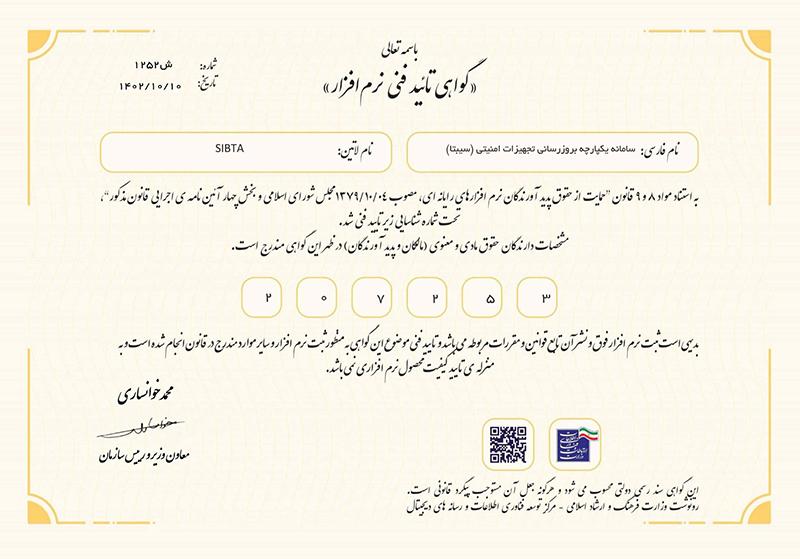 باسمه تعالی
«گواهی تائید فنی نرم افزار»
شماره: ش۱۲۵۲
تاریخ: ۱۴۰۲/۱۰/۱۰
نام فارسی: سامانه یکپارچه بروزرسانی تجهیزات امنیتی (سیبتا)
نام لاتین: SIBTA
به استناد مواد ۸ و ۹ قانون "حمایت از حقوق پدید آورندگان نرم افزارهای رایانه ای، مصوب ۱۳۷۹/۱۰/۰۴ مجلس شورای اسلامی و بخش چهار آئین نامه ی اجرایی قانون مذکور"،
تحت شماره شناسایی زیر تایید فنی شد.
مشخصات دارندگان حقوق مادی و معنوی (مالکان و پدید آورندگان) در ظهر این گواهی مندرج است.
۲ ۰ ۷ ۲ ۵ ۳
بدیهی است ثبت نرم افزار فوق و نشر آن تابع قوانین و مقررات مربوطه می باشد و تایید فنی موضوع این گواهی به منظور ثبت نرم افزار و سایر موارد مندرج در قانون انجام شده است و به
منزله ی تایید کیفیت محصول نرم افزاری نمی باشد.
محمد خوانساری
معاون وزیر و رییس سازمان
این گواهی سند رسمی دولتی محسوب می شود و هرگونه جعل آن مستوجب پیگرد قانونی است.
رونوشت وزارت فرهنگ و ارشاد اسلامی - مرکز توسعه فناوری اطلاعات و رسانه های دیجیتال